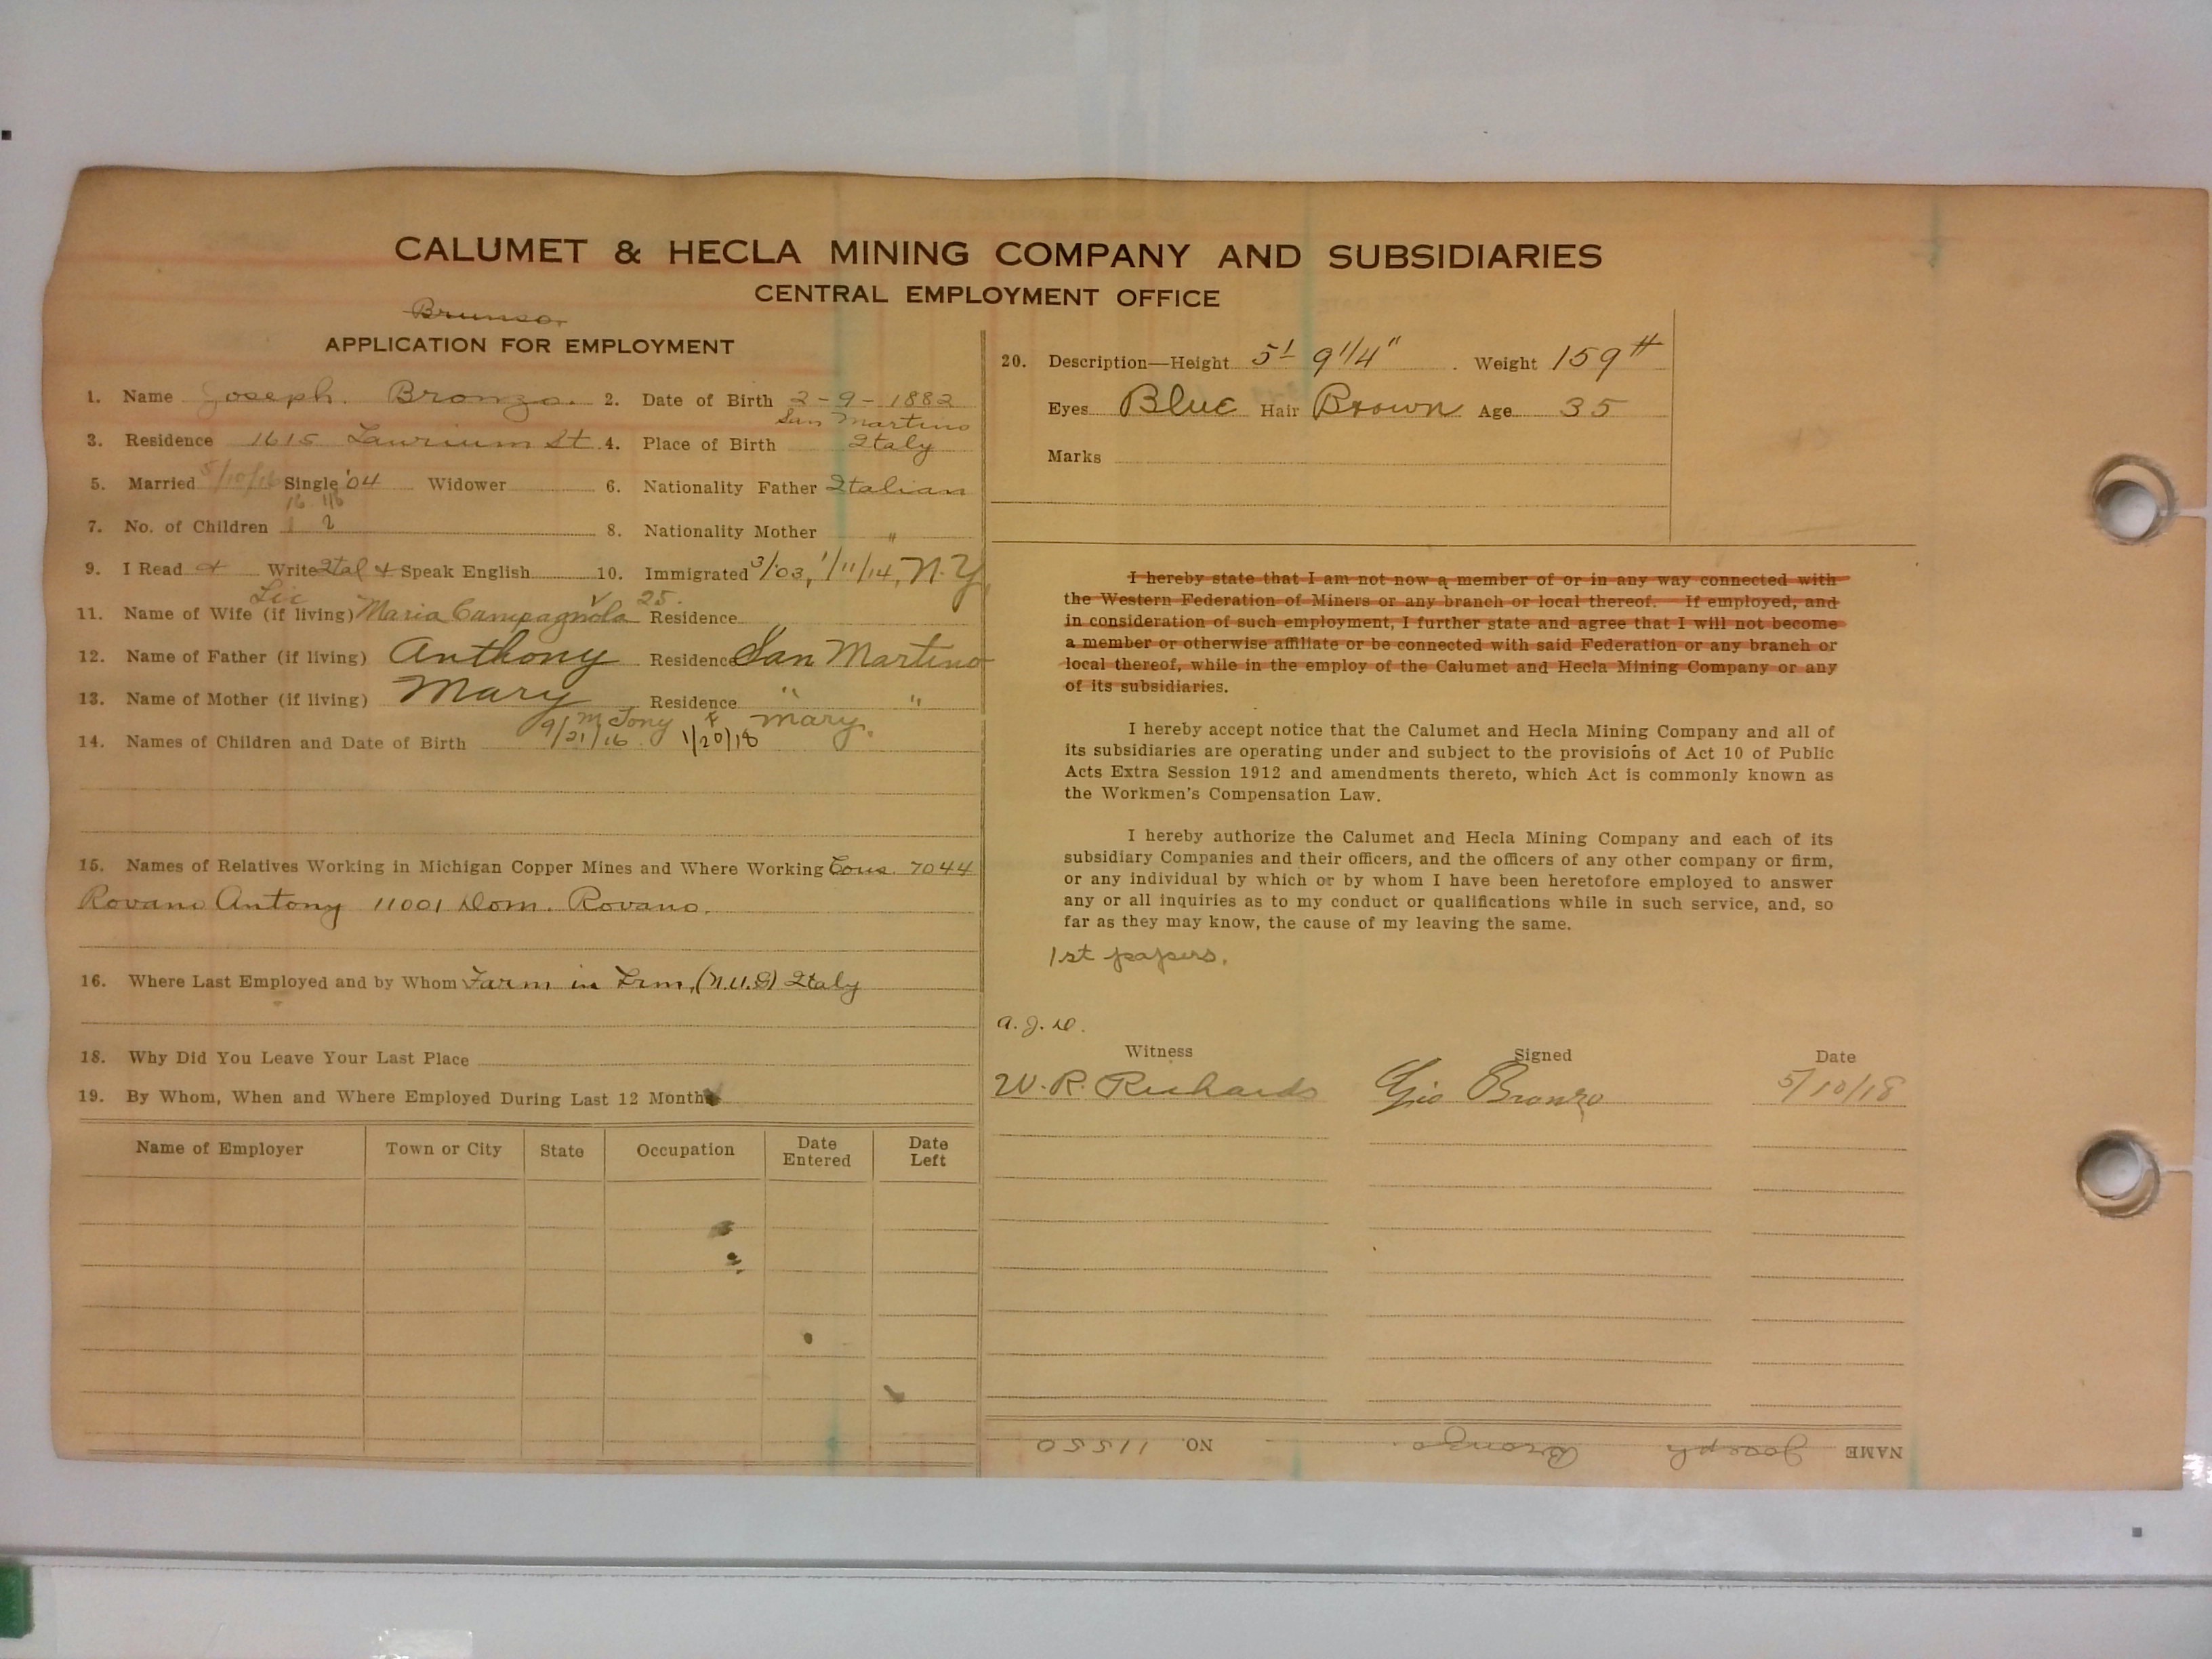 CALUMET & HECLA MINING COMPANY AND SUBSIDIARIES
CENTRAL EMPLOYMENT OFFICE
Brunso.
APPLICATION FOR EMPLOYMENT
1. Name Joseph. Bronzo. 2. Date of Birth 2-9-1882
San Martino
3. Residence 1615 Laurium St 4. Place of Birth Italy
5. Married 5/10/16 Single '04 Widower 6. Nationality Father Italian
7. No. of Children 2 8. Nationality Mother "
9. I Read & Write Ital & Speak English 10. Immigrated 3/'03, 1/11/14, N.Y.
25.
11. Name of Wife (if living) Maria Campagnola Residence
12. Name of Father (if living) Anthony Residence San Martino
13. Name of Mother (if living) Mary Residence " "
M Tony F Mary.
14. Names of Children and Date of Birth 9/21/16 1/20/18
15. Names of Relatives Working in Michigan Copper Mines and Where Working Cous. 7044
Rovano Antony 11001 Dom. Rovano.
16. Where Last Employed and by Whom Farm in Italy
18. Why Did You Leave Your Last Place
19. By Whom, When and Where Employed During Last 12 Months
Name of Employer Town or City State Occupation Date Entered Date Left
20. Description—Height 5' 9 1/4" . Weight 159 #
Eyes Blue Hair Brown Age 35
Marks
I hereby state that I am not now a member of or in any way connected with
the Western Federation of Miners or any branch or local thereof. If employed, and
in consideration of such employment, I further state and agree that I will not become
a member or otherwise affiliate or be connected with said Federation or any branch or
local thereof, while in the employ of the Calumet and Hecla Mining Company or any
of its subsidiaries.
I hereby accept notice that the Calumet and Hecla Mining Company and all of
its subsidiaries are operating under and subject to the provisions of Act 10 of Public
Acts Extra Session 1912 and amendments thereto, which Act is commonly known as
the Workmen's Compensation Law.
I hereby authorize the Calumet and Hecla Mining Company and each of its
subsidiary Companies and their officers, and the officers of any other company or firm,
or any individual by which or by whom I have been heretofore employed to answer
any or all inquiries as to my conduct or qualifications while in such service, and, so
far as they may know, the cause of my leaving the same.
1st papers.
a.J.D.
Witness Signed Date
W. R. Richards Gio Bronzo 5/10/18
NAME Joseph Bronzo. NO. 11550